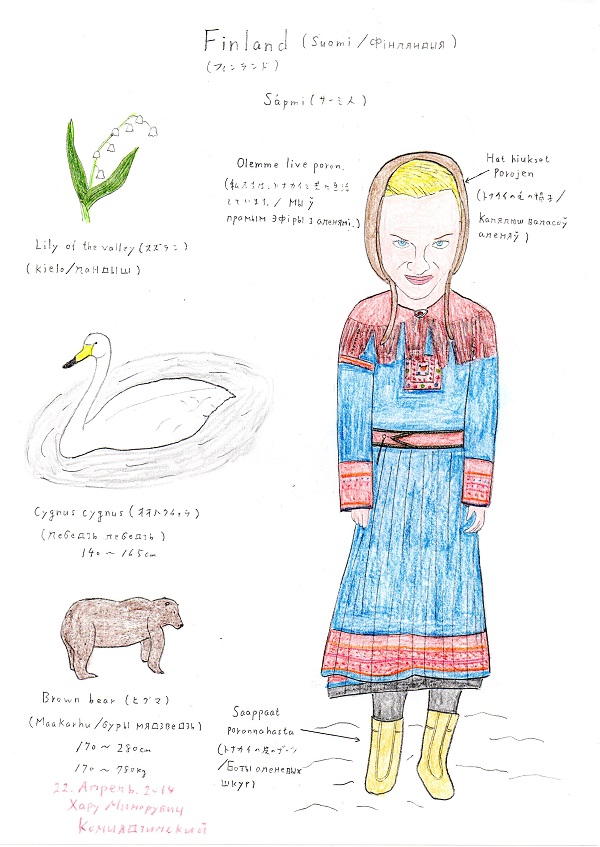 Finland (Suomi/Фінляндыя)
(フィンランド)
Sápmi (サーミ人)
Olemme live poron.
(私たちは、トナカイと共の生活
しています。/ Мы ў
прамым эфіры з аленямі.)
Hat hiukset
porojen
(トナカイの毛の帽子/
Капялюш валасоў
аленяў)
Lily of the valley (スズラン)
(kielo/ландыш)
Cygnus cygnus (オオハクチョウ)
(лебедзь лебедзь)
140 ~ 165cm
Brown bear (ヒグマ)
(Maakarhu/буры мядзведзь)
170 ~ 280cm
170 ~ 780kg
Saappaat
poronnahasta
(トナカイの皮のブーツ
/Боты аленевых
шкур)
22. Апрель. 2014
Хару Минорувич